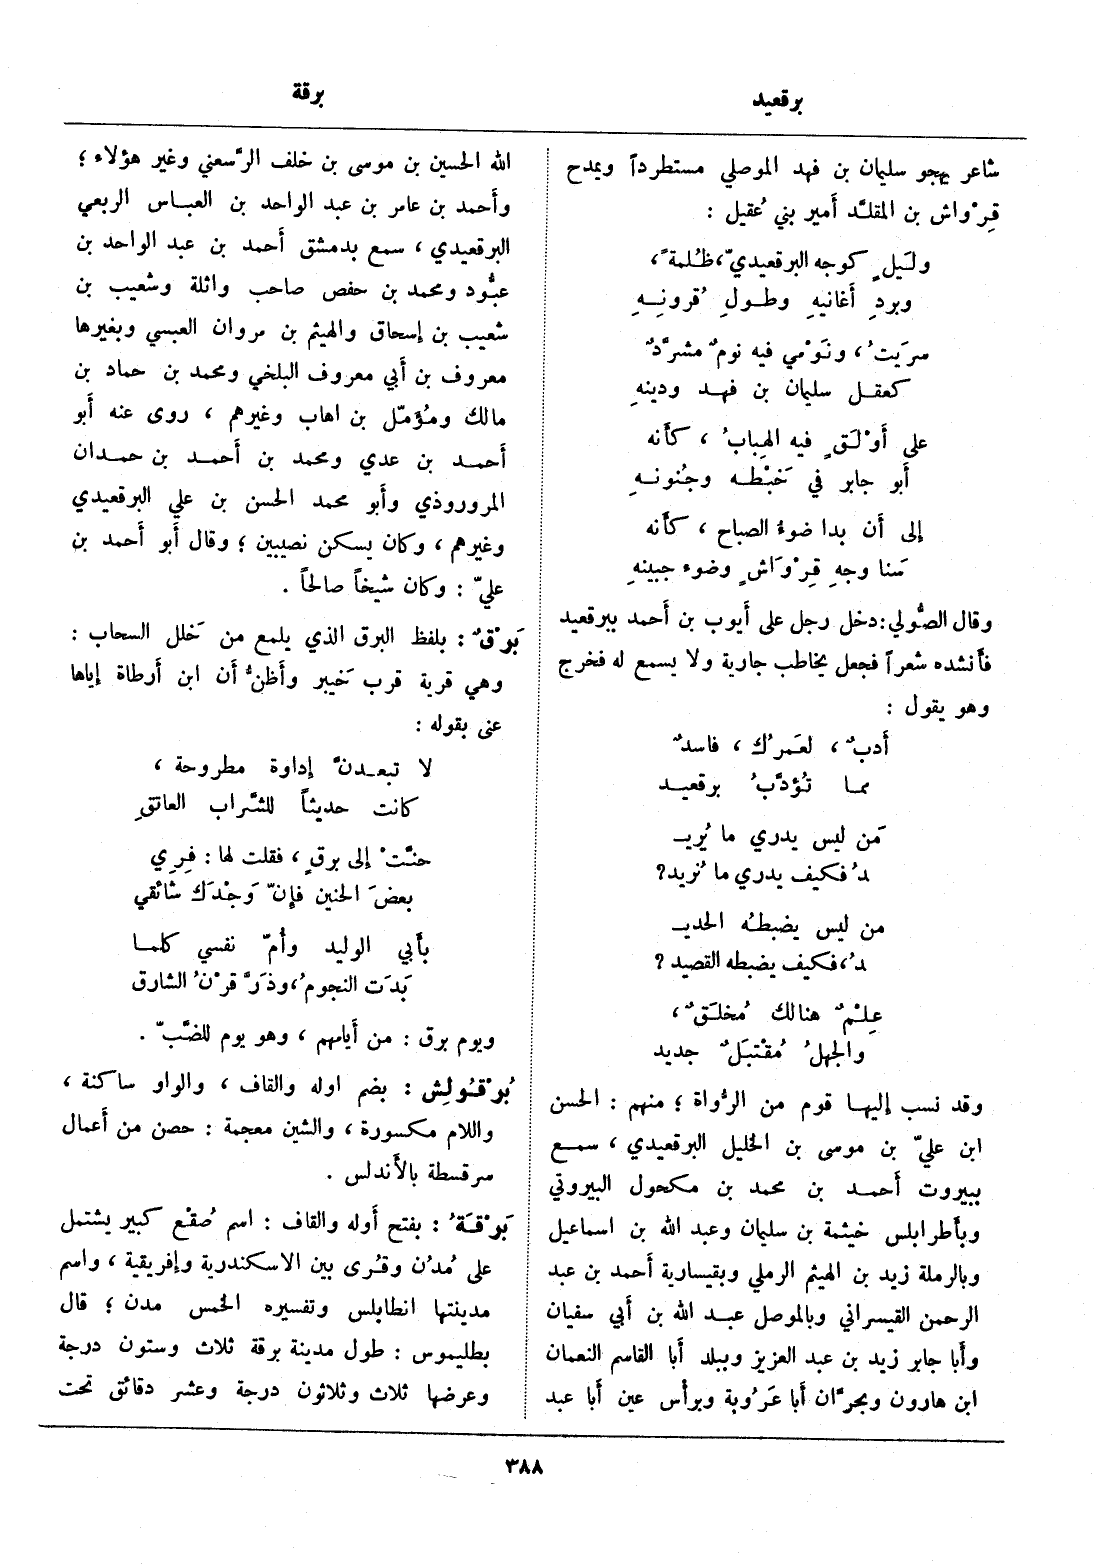 برقعيد
برقة
شاعر يهجو سليمان بن فهد الموصلي مستطرداً ويمدح
قِرْواش بن المقلَّد أمير بني عُقيل :
وليَلٍ كوجه البرقعيديّ ، ظُلمةً ،
وبردِ أغانيهِ وطولِ قُرونِهِ
سريتُ ، ونَوْمي فيه نومٌ مشرَّدٌ
كعقل سليمان بن فهد ودينهِ
على أوْلَقٍ فيه الهِبابُ ، كأنه
أبو جابر في خَبْطه وجُنونهِ
إلى أن بدا ضوءُ الصباح ، كأنه
سَنا وجهِ قِرْوَاشٍ وضوء جبينهِ
وقال الصُّولي : دخل رجل على أيوب بن أحمد ببرقعيد
فأنشده شعراً فجعل يخاطب جارية ولا يسمع له فخرج
وهو يقول :
أدبٌ ، لعَمرُك ، فاسدٌ
مما تُؤدِّبُ برقعيد
مَن ليس يدري ما يُريـ
ـدُ فكيف يدري ما نُريد ؟
من ليس يضبطُه الحديـ
ـدُ ، فكيف يضبطه القصيد ؟
عِلْمٌ هنالك مُخلَقٌ ،
والجهلُ مُقْتبَلٌ جديد
وقد نسب إليها قوم من الرُّواة ؛ منهم : الحسن
ابن عليّ بن موسى بن الخليل البرقعيدي ، سمع
ببيروت أحمد بن محمد بن مكحول البيروتي
وبأطرابلس خيثمة بن سليمان وعبد الله بن اسماعيل
وبالرملة زيد بن الهيثم الرملي وبقيسارية أحمد بن عبد
الرحمن القيسراني وبالموصل عبد الله بن أبي سفيان
وأبا جابر زيد بن عبد العزيز وببلد أبا القاسم النعمان
ابن هارون وبحرَّان أبا عَرُوبة وبرأس عين أبا عبد
الله الحسين بن موسى بن خلف الرَّسعني وغير هؤلاء ؛
وأحمد بن عامر بن عبد الواحد بن العباس الربعي
البرقعيدي ، سمع بدمشق أحمد بن عبد الواحد بن
عبُّود ومحمد بن حفص صاحب واثلة وشعيب بن
شعيب بن إسحاق والهيثم بن مروان العبسي وبغيرها
معروف بن أبي معروف البلخي ومحمد بن حماد بن
مالك ومُؤمّل بن اهاب وغيرهم ، روى عنه أبو
أحمد بن عدي ومحمد بن أحمد بن حمدان
المروروذي وأبو محمد الحسن بن علي البرقعيدي
وغيرهم ، وكان يسكن نصيبين ؛ وقال أبو أحمد بن
عليّ : وكان شيخاً صالحاً .
بَرْقٌ : بلفظ البرق الذي يلمع من خَلل السحاب :
وهي قرية قرب خَيبر وأظنُّ أن ابن أرطاة إياها
عنى بقوله :
لا تبعدنَّ إداوة مطروحة ،
كانت حديثاً للشَّراب العاتقِ
حنَّتْ إلى برقٍ ، فقلت لها : قِرِي
بعضَ الحنين فإنّ وَجْدَك شائقي
بأبي الوليد وأمّ نفسي كلما
بَدَت النجومُ ، وذَرَّ قرْنُ الشارق
ويوم برق : من أيامهم ، وهو يوم للضَّبّ .
بُرْقُولِش : بضم اوله والقاف ، والواو ساكنة ،
واللام مكسورة ، والشين معجمة : حصن من أعمال
سرقسطة بالأندلس .
بَرْقَةُ : بفتح أوله والقاف : اسم صُقْع كبير يشتمل
على مُدُن وقُرى بين الاسكندرية وإفريقية ، واسم
مدينتها انطابلس وتفسيره الخمس مدن ؛ قال
بطليموس : طول مدينة برقة ثلاث وستون درجة
وعرضها ثلاث وثلاثون درجة وعشر دقائق تحت
٣٨٨